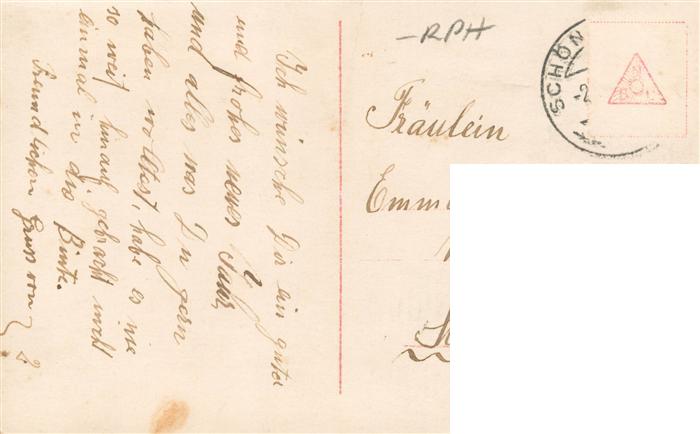 Ich wünsche Dir ein gutes
und frohes neues Jahr,
und alles was Du gern
haben wolltest, habe es nie
so weit hinauf gebracht nicht
einmal in die Binte.
Freundlichen Gruss von
-RPH
SCHÖN
Fräulein
Emm